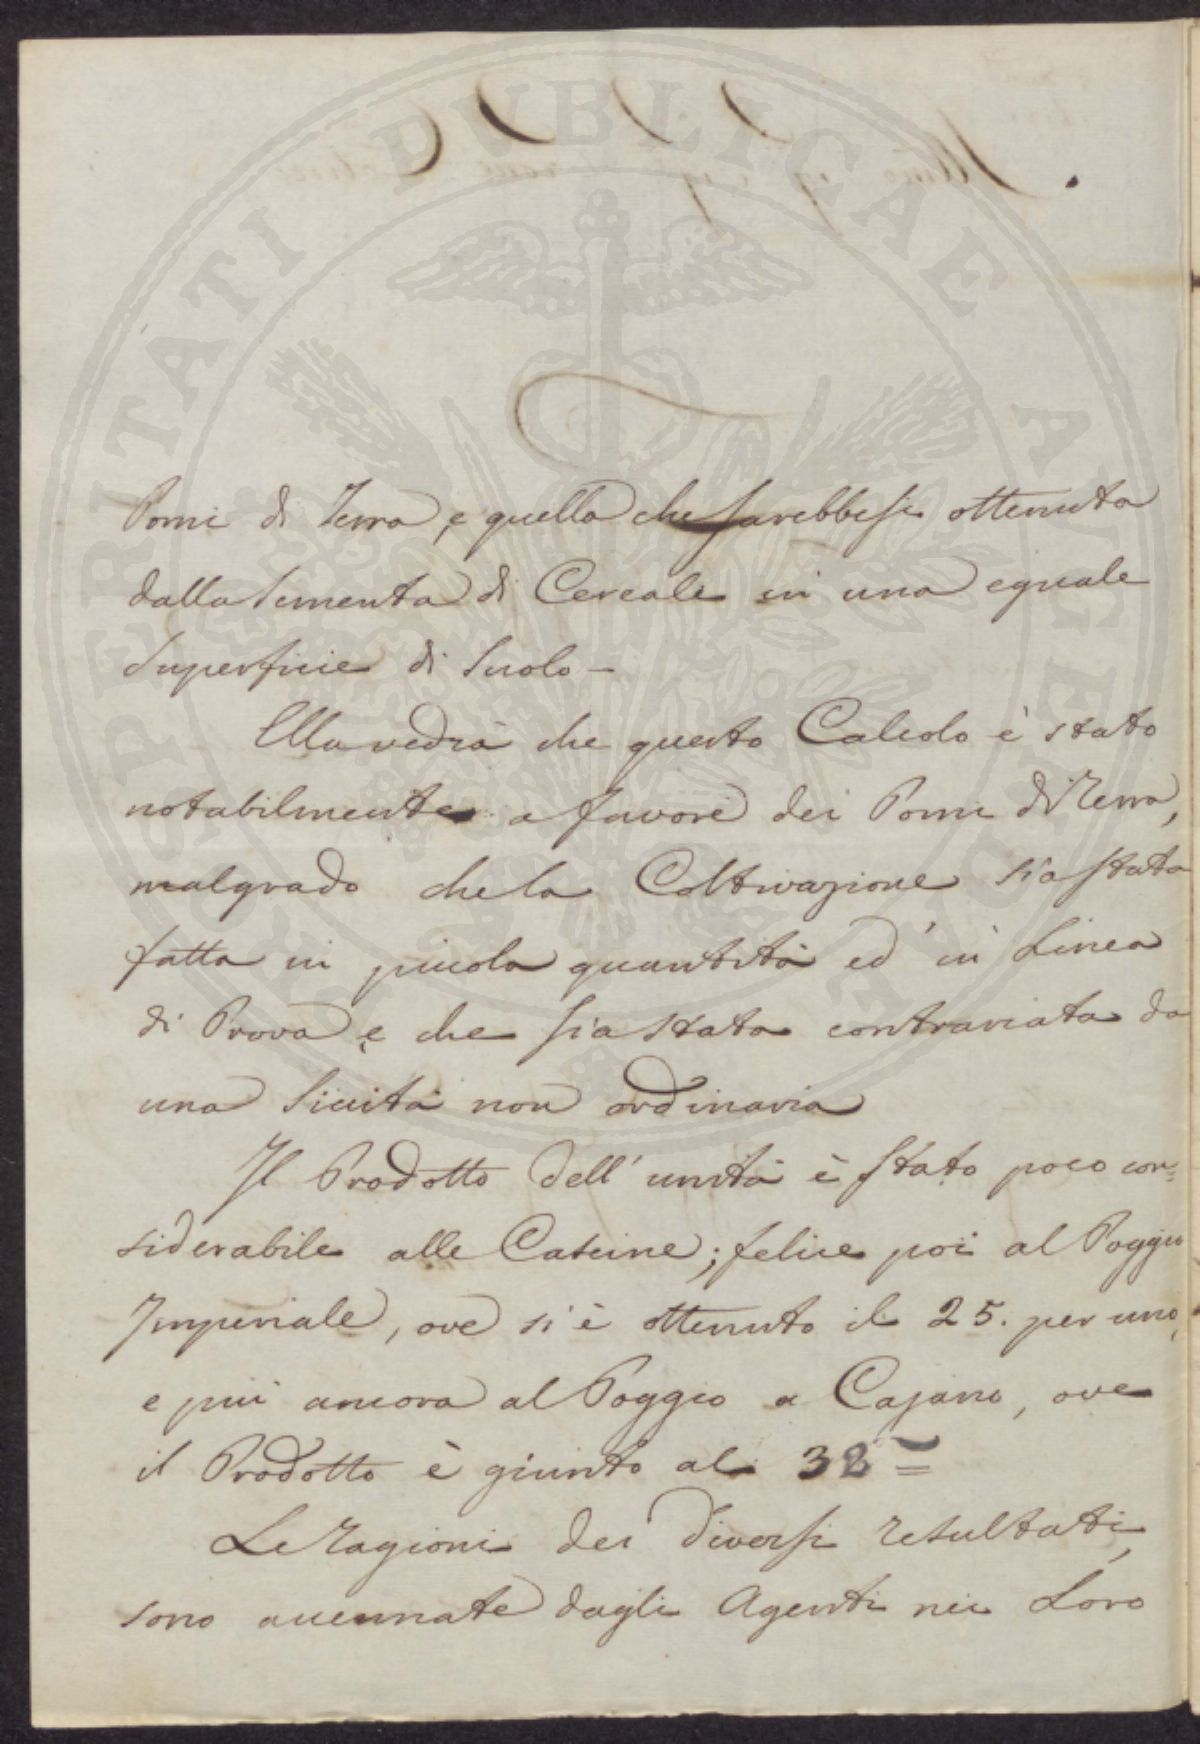 PROSPERITATI PUBLICAE AUGENDAE
Pomi di Terra, e quella che sarebbesi ottenuta
dalla sementa di Cereali in una eguale
Superficie di Suolo -
Ella vedrà che questo Calcolo è stato
notabilmente a favore dei Pomi di Terra,
malgrado che la Coltivazione sia stata
fatta in piccola quantità ed in Linea
di Prova, e che sia stata contrariata da
una Siccità non ordinaria
Il Prodotto dell' unità è stato poco con=
siderabile alle Cascine; felice poi al Poggio
Imperiale, ove si è ottenuto il 25. per uno,
e più ancora al Poggio a Cajano, ove
il Prodotto è giunto al 32 =
Le ragioni dei diversi resultati,
sono accennate dagli Agenti nei Loro